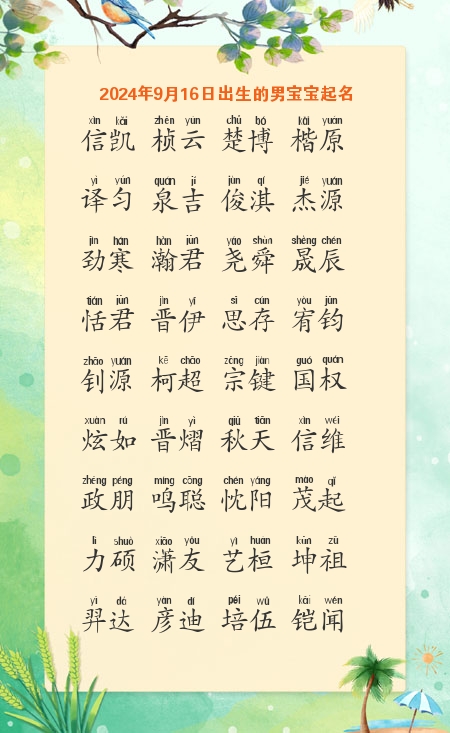 2024年9月16日出生的男宝宝起名
xìn kǎi zhēn yún chǔ bó kǎi yuán
信凯 桢云 楚博 楷原
yì yún quán jí jùn qí jié yuán
译匀 泉吉 俊淇 杰源
jìn hán hàn jūn yáo shùn shèng chén
劲寒 瀚君 尧舜 晟辰
tián jūn jìn yī sī cún yòu jūn
恬君 晋伊 思存 宥钧
zhāo yuán kē chāo zōng jiàn guó quán
钊源 柯超 宗键 国权
xuàn rú jìn yì qiū tiān xìn wéi
炫如 晋熠 秋天 信维
zhèng péng míng cōng chén yáng mào qǐ
政朋 鸣聪 忱阳 茂起
lì shuò xiāo yǒu yì huán kūn zǔ
力硕 潇友 艺桓 坤祖
yì dá yàn dí péi wǔ kǎi wén
羿达 彦迪 培伍 铠闻